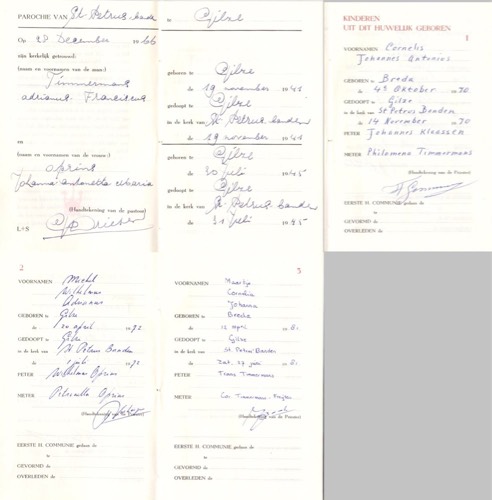 PAROCHIE VAN St. Petrus banden
Op 28 December 1966
zijn kerkelijk getrouwd:
(naam en voornamen van de man:)
Timmermans
adrianus Franciscus
en
(naam en voornamen van de vrouw:)
Oprins
Johanna Antonetta Maria
(Handtekening van de pastoor)
L+S
te Gilze
geboren te Gilze
de 19 november 1945
gedoopt te Gilze
in de kerk van St Petrus banden
de 19 november 1945
geboren te Gilze
de 30 juli 1945
gedoopt te Gilze
in de kerk van St. Petrus banden
de 31 juli 1945
KINDEREN
UIT DIT HUWELIJK GEBOREN
1
VOORNAMEN Cornelis
Johannes Antonius
GEBOREN te Breda
de 4e Oktober 1970
GEDOOPT te Gilze
in de kerk van St Petrus Banden
de 14 November 1970
PETER Johannes Klaassen
METER Philomena Timmermans
(Handtekening van de Pastoor)
EERSTE H. COMMUNIE gedaan de
GEVORMD de
OVERLEDEN de
2
VOORNAMEN Michel
Wilhelmus
Adrianus
GEBOREN te Gilze
de 20 april 1972
GEDOOPT te Gilze
in de kerk van St Petrus Banden
de 1 juli 1972
PETER Wilhelmus Oprins
METER Petronella Oprins
(Handtekening van de Pastoor)
EERSTE H. COMMUNIE gedaan de
GEVORMD de
OVERLEDEN de
3
VOORNAMEN Maartje
Cornelia
Johanna
GEBOREN te Breda
de 12 april 1981
GEDOOPT te Gilze
in de kerk van St. Petrus' Banden
de Zat. 27 juni 1981
PETER Frans Timmermans
METER Cor. Timmermans
(Handtekening van de Pastoor)
EERSTE H. COMMUNIE gedaan de
GEVORMD de
OVERLEDEN de